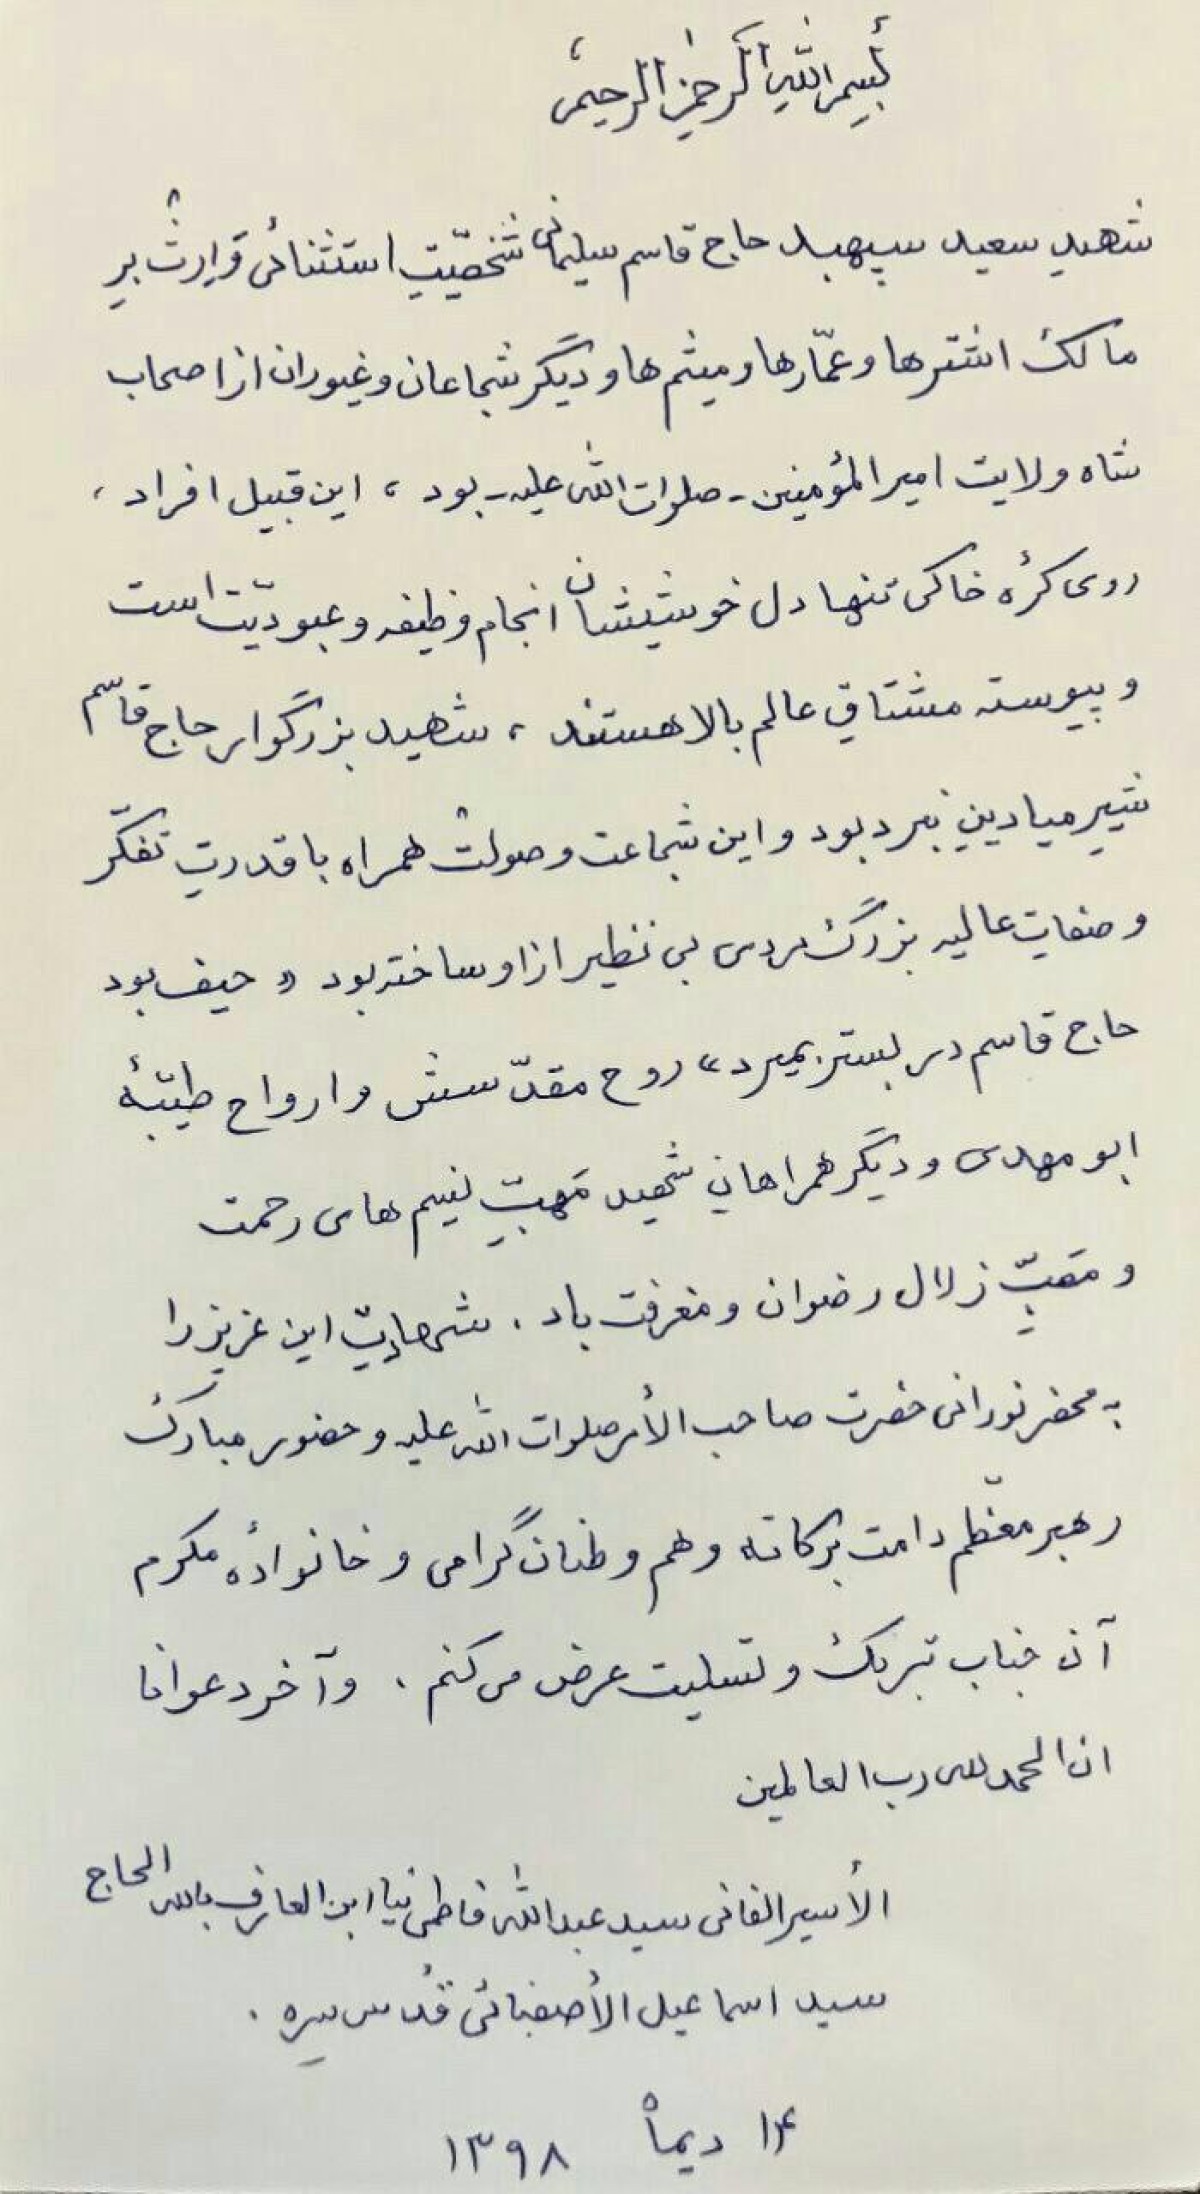 بِسمِ اللّٰهِ الرَّحمٰنِ الرحیم
شهیدِ سعید سپهبد حاج قاسم سلیمانی شخصیّتِ استثنائی و وارثِ برِ
مالک اشترها و عمّارها و میثم‌ها و دیگر شجاعان و غیوران از اصحاب
شاه ولایت امیرالمؤمنین - صلوات الله علیه - بود ، این قبیل افراد ،
روی کرۀ خاکی تنها دل خوشیشان انجام وظیفه و عبودیّت است
و پیوسته مشتاقِ عالم بالا هستند ، شهید بزرگوار حاج قاسم
شیرِ میادینِ نبرد بود و این شجاعت و صولت همراه با قدرتِ تفکّر
و صفات عالیه بزرگ‌مردی بی نظیر از او ساخته بود « حیف بود
حاج قاسم در بستر بمیرد » روح مقدّسش و ارواح طیّبۀ
ابو مهدی و دیگر همراهانِ شهید مَهبِّ نسیم های رحمت
و مَصبِّ زلال رضوان و مغفرت باد . شهادتِ این عزیز را
به محضر نورانی حضرت صاحب الأمر صلوات الله علیه و حضور مبارک
رهبر معظّم دامت برکاته و هم وطنان گرامی و خانوادۀ مکرم
آن جناب تبریک و تسلیت عرض می کنم . و آخر دعوانا
ان الحمد لله رب العالمین
الأسیر الفانی سید عبدالله فاطمی نیا ابن العارف بالله الحاج
سید اسماعیل الأصفیائی قُدّس سِرِه .
۱۴ دیماه ۱۳۹۸